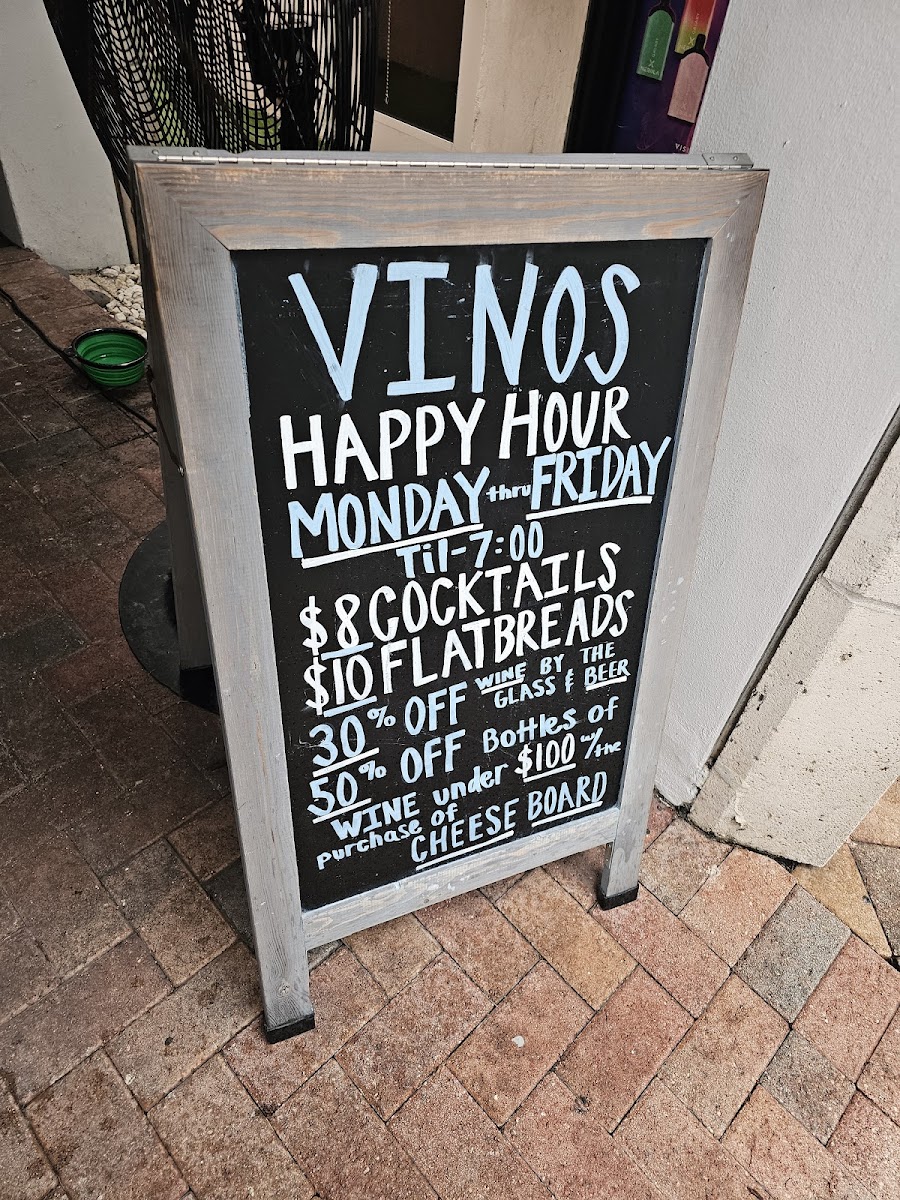 VINOS
HAPPY HOUR
MONDAY thru FRIDAY
Til-7:00
$8 COCKTAILS
$10 FLATBREADS
30% OFF WINE BY THE
GLASS & BEER
50% OFF Bottles of
WINE under $100 w/ the
purchase of
CHEESE BOARD